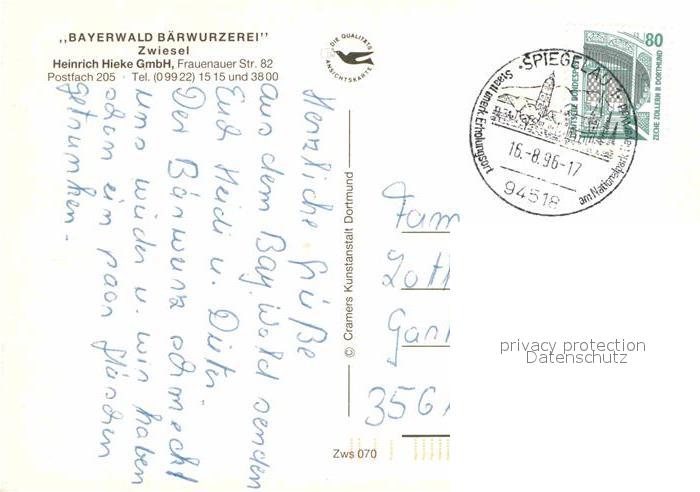 „BAYERWALD BÄRWURZEREI”
Zwiesel
Heinrich Hieke GmbH, Frauenauer Str. 82
Postfach 205 · Tel. (0 99 22) 15 15 und 38 00
DIE QUALITÄTS
ANSICHTSKARTE
Herzliche Grüße
aus dem Bay. Wald senden
Euch Heidi u. Dieter
Der Bärwurz schmeckt
uns wieder u. wir haben
schon ein paar Gläschen
getrunken.
© Cramers Kunstanstalt Dortmund
Zws 070
80
DEUTSCHE BUNDESPOST
ZECHE ZOLLERN II DORTMUND
SPIEGELAU
Staatl. anerk. Erholungsort
am Nationalpark
16.-8.96-17
94518
Fam
356
privacy protection
Datenschutz